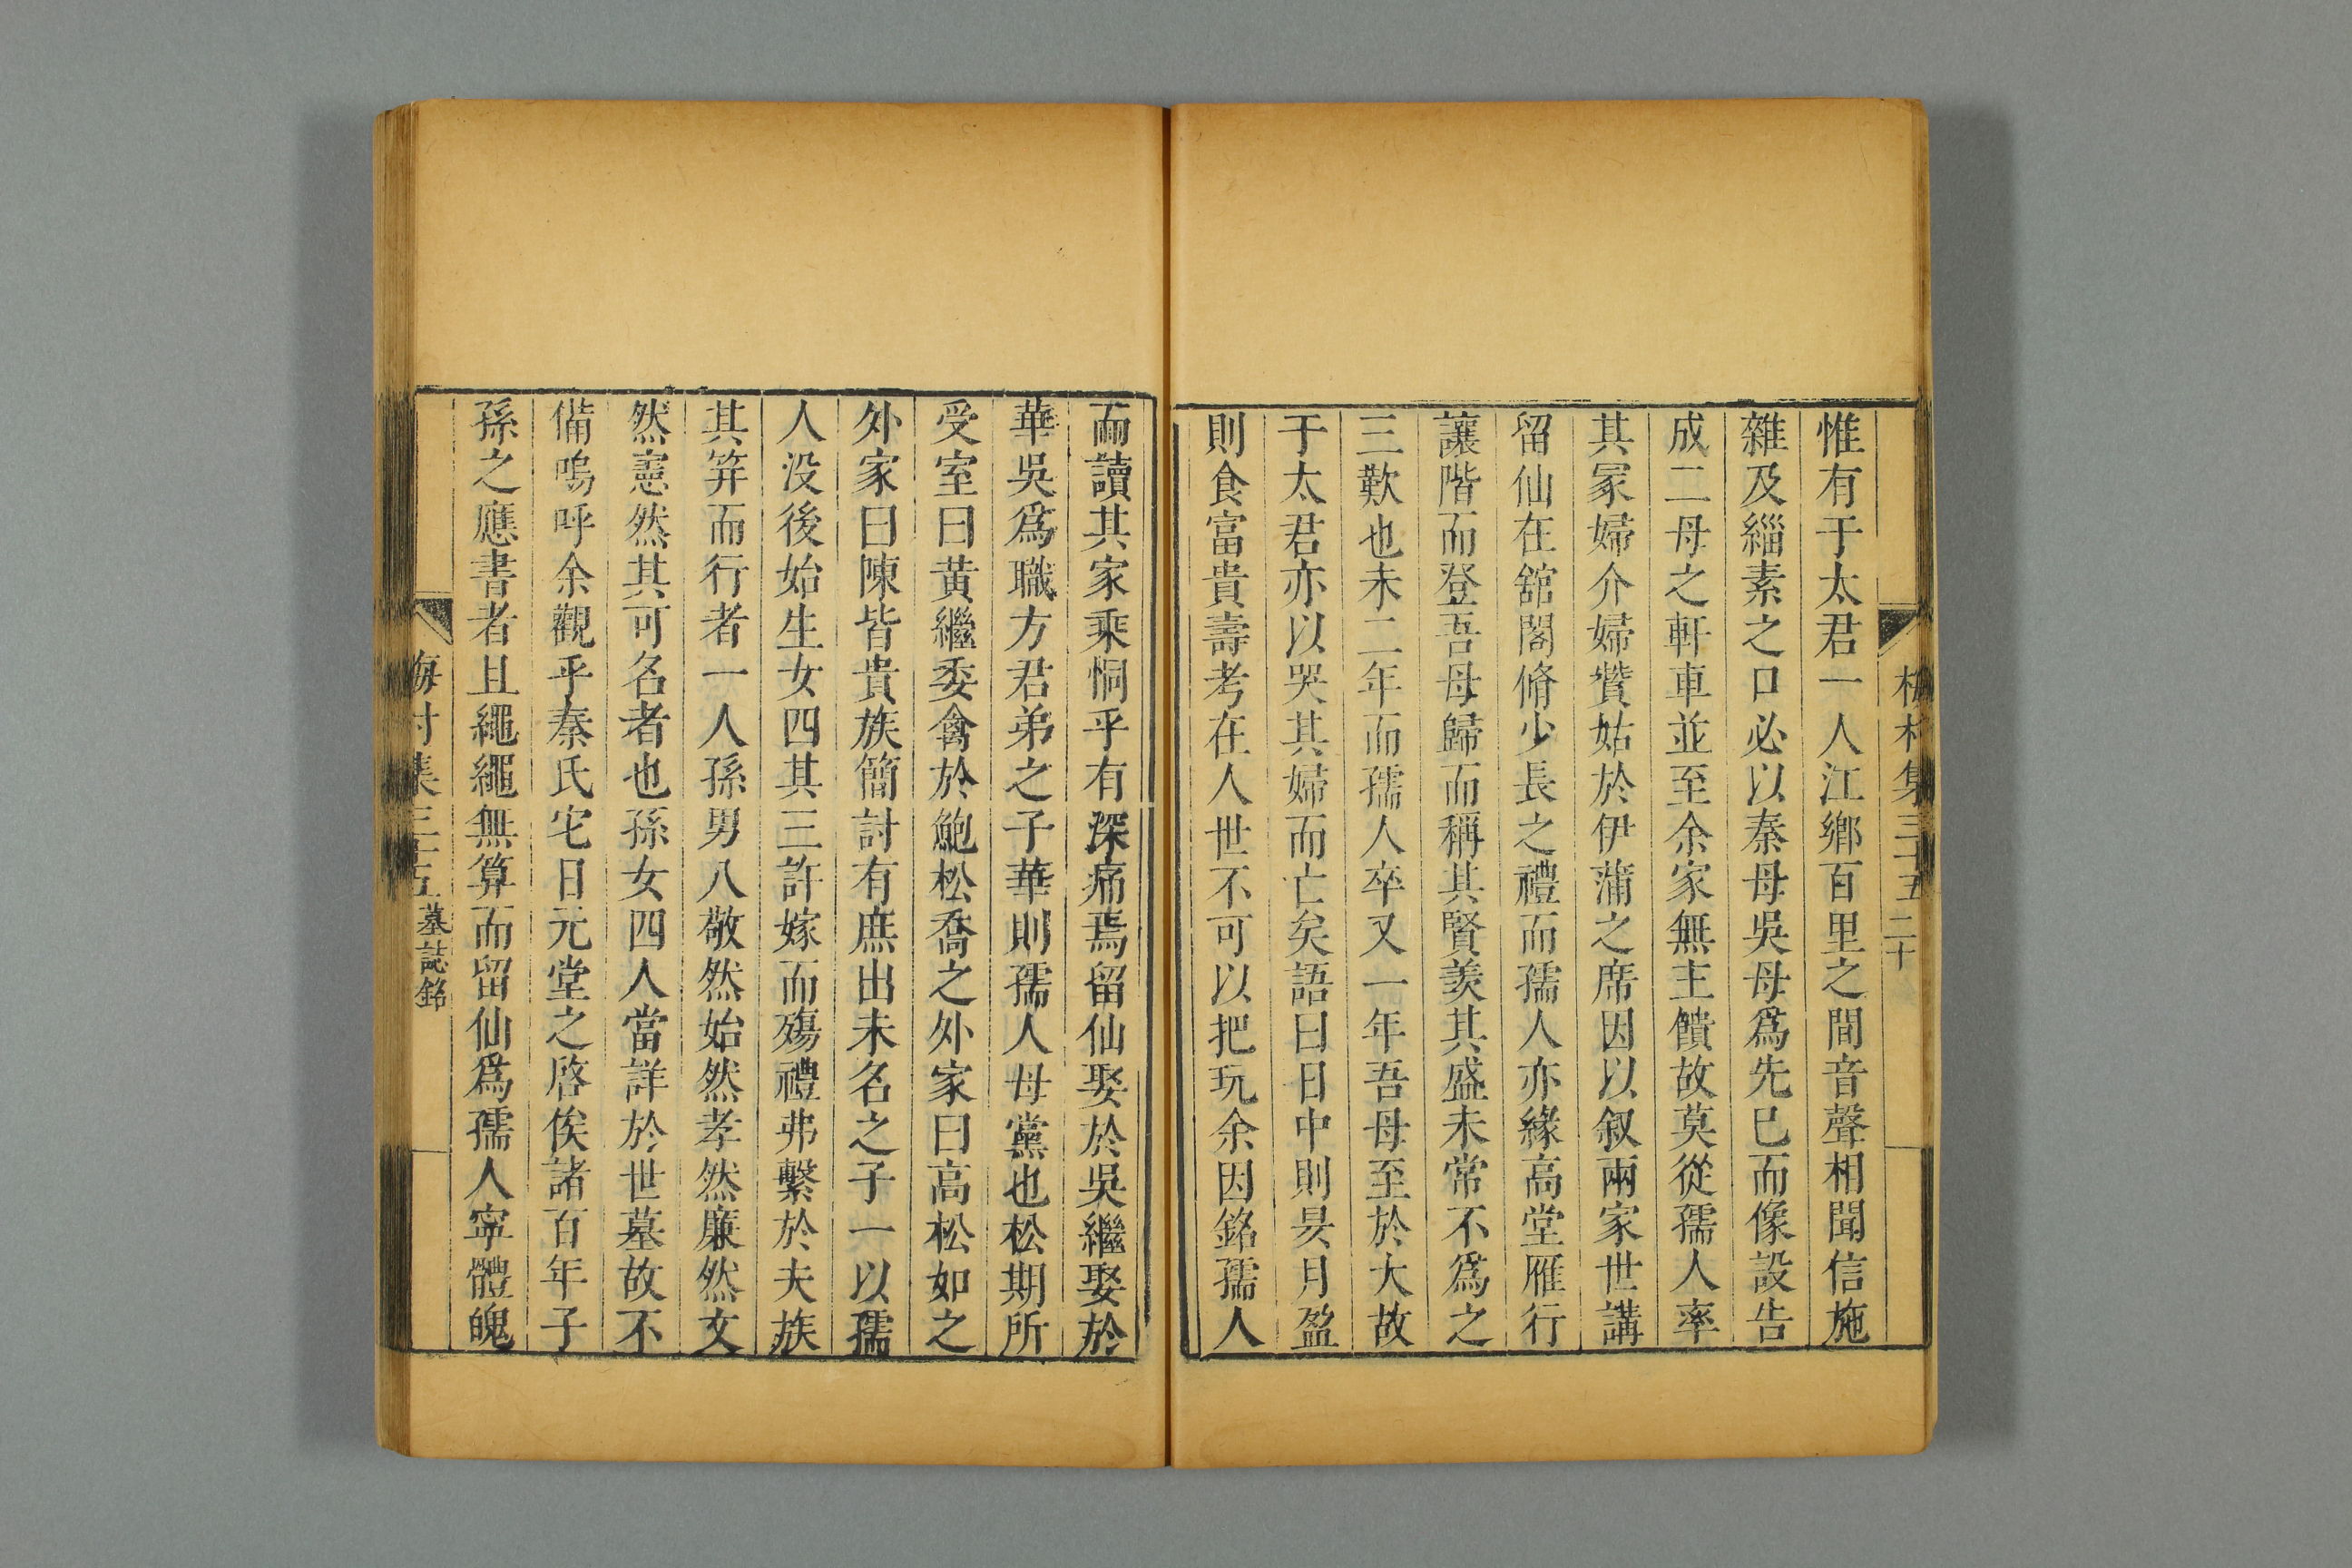 惟有于太君一人江鄉百里之間音聲相聞信施
雜及緇素之口必以秦母吳母爲先巳而像設告
成二母之軒車並至余家無主饋故莫從孺人率
其冢婦介婦贊姑於伊蒲之席因以叙兩家世講
留仙在舘閣脩少長之禮而孺人亦緣高堂雁行
讓階而登吾母歸而稱其賢羨其盛未常不爲之
三歎也未二年而孺人卒又一年吾母至於大故
于太君亦以哭其婦而亡矣語曰日中則昃月盈
則食富貴壽考在人世不可以把玩余因銘孺人
而讀其家乘恫乎有深痛焉留仙娶於吳繼娶於
華吳爲職方君弟之子華則孺人母黨也松期所
受室曰黃繼委禽於鮑松喬之外家曰高松如之
外家曰陳皆貴族簡討有庶出未名之子一以孺
人没後始生女四其三許嫁而殤禮弗繫於夫族
其笄而行者一人孫男八敬然始然孝然廉然文
然憲然其可名者也孫女四人當詳於世墓故不
備嗚呼余觀乎秦氏宅日元堂之啓俟諸百年子
孫之應書者且繩繩無算而留仙爲孺人寧體魄
梅村集三十五 二十
梅村集三十五 墓誌銘